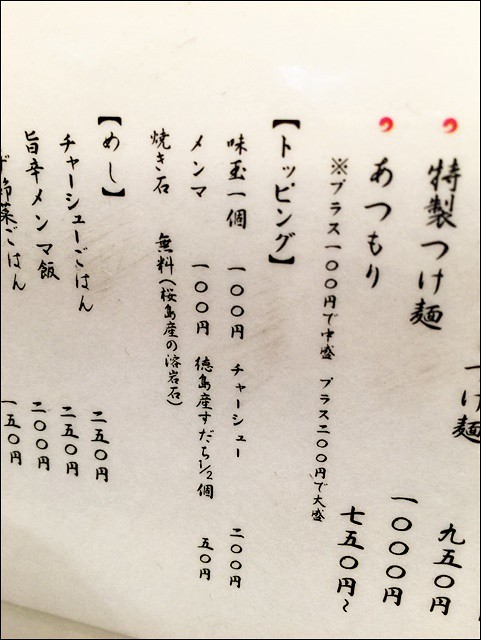 つけ麺 九五〇円
特製つけ麺 一〇〇〇円
あつもり 七五〇円〜
※プラス一〇〇円で中盛 プラス二〇〇円で大盛
【トッピング】
味玉一個 一〇〇円 チャーシュー 二〇〇円
メンマ 一〇〇円 徳島産すだち1/2個 五〇円
焼き石 無料(桜島産の溶岩石)
【めし】
チャーシューごはん 二五〇円
旨辛メンマ飯 二五〇円
菜ごはん 二〇〇円
一五〇円